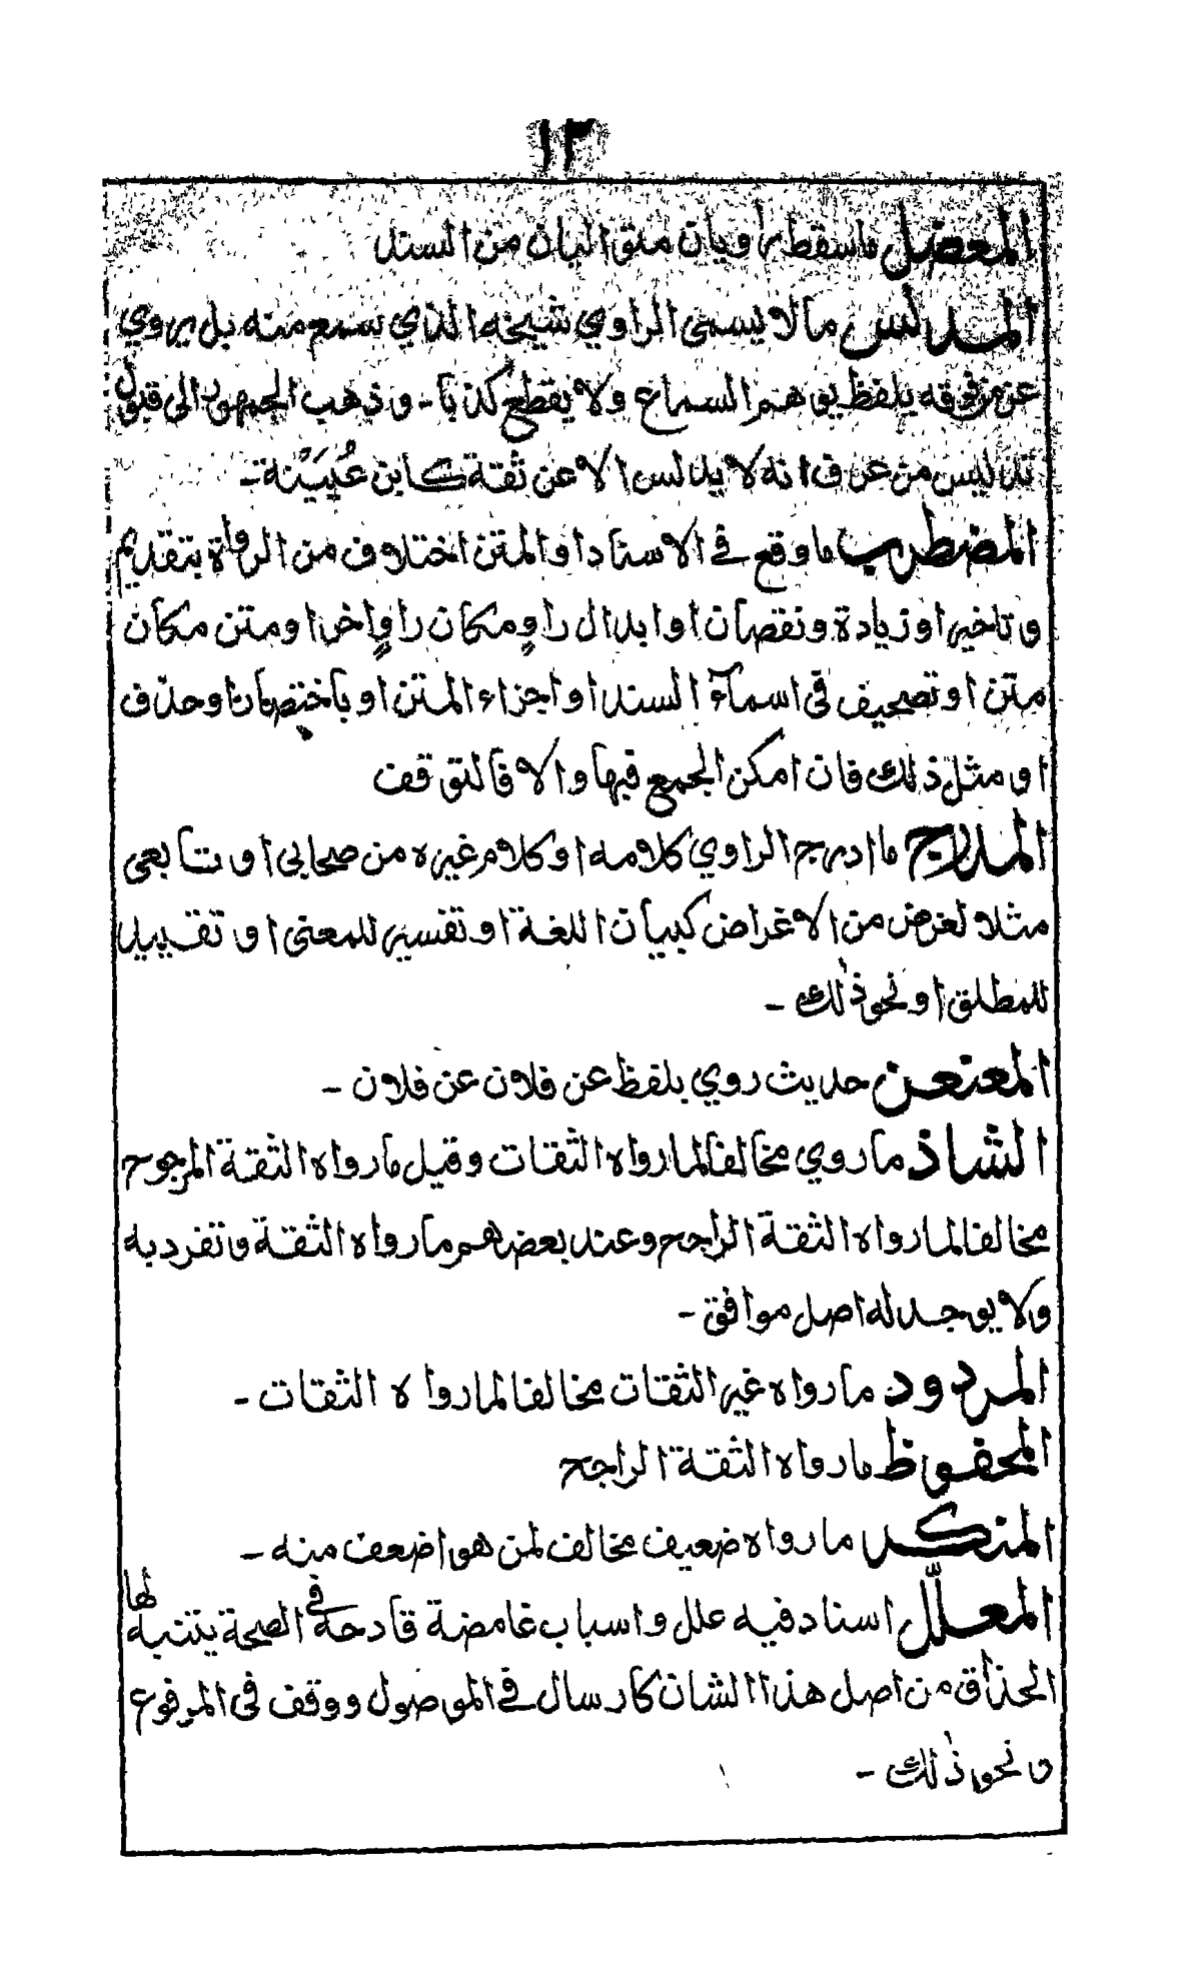 ١٣
المعضل ماسقط راويان متواليان من السند
المدلس مالا يسمى الراوي شيخه الذي سمع منه بل يروي
عن من فوقه بلفظ يوهم السماع ولا يقطع كذبا - وذهب الجمهور الى قبول
تدليس من عرف انه لا يدلس الا عن ثقة كابن عُيَيْنة -
المضطرب ما وقع في الاسناد او المتن اختلاف من الرواة بتقديم
وتاخير او زيادة ونقصان او ابدال راوٍ مكان راوٍ اخر او متن مكان
متن او تصحيف في اسمآء السند او اجزاء المتن او باختصار او حذف
او مثل ذلك فان امكن الجمع فبها والا فالتوقف
المدرج ما ادرج الراوي كلامه او كلام غيره من صحابي او تابعي
مثلا لغرض من الاغراض كبيان اللغة او تفسير للمعنى او تقييد
للمطلق او نحو ذلك -
المعنعن حديث روي بلفظ عن فلان عن فلان -
الشاذ ما روي مخالفا لما رواه الثقات وقيل ما رواه الثقة المرجوح
مخالفا لما رواه الثقة الراجح وعند بعضهم ما رواه الثقة وتفرد به
ولا يوجد له اصل موافق -
المردود ما رواه غير الثقات مخالفا لما رواه الثقات -
المحفوظ ما رواه الثقة الراجح
المنكر ما رواه ضعيف مخالف لمن هو اضعف منه -
المعلّل اسناد فيه علل واسباب غامضة قادحة في الصحة يتنبه لها
الحذاق من اصل هذا الشان كارسال في الموصول ووقف في المرفوع
ونحو ذلك -